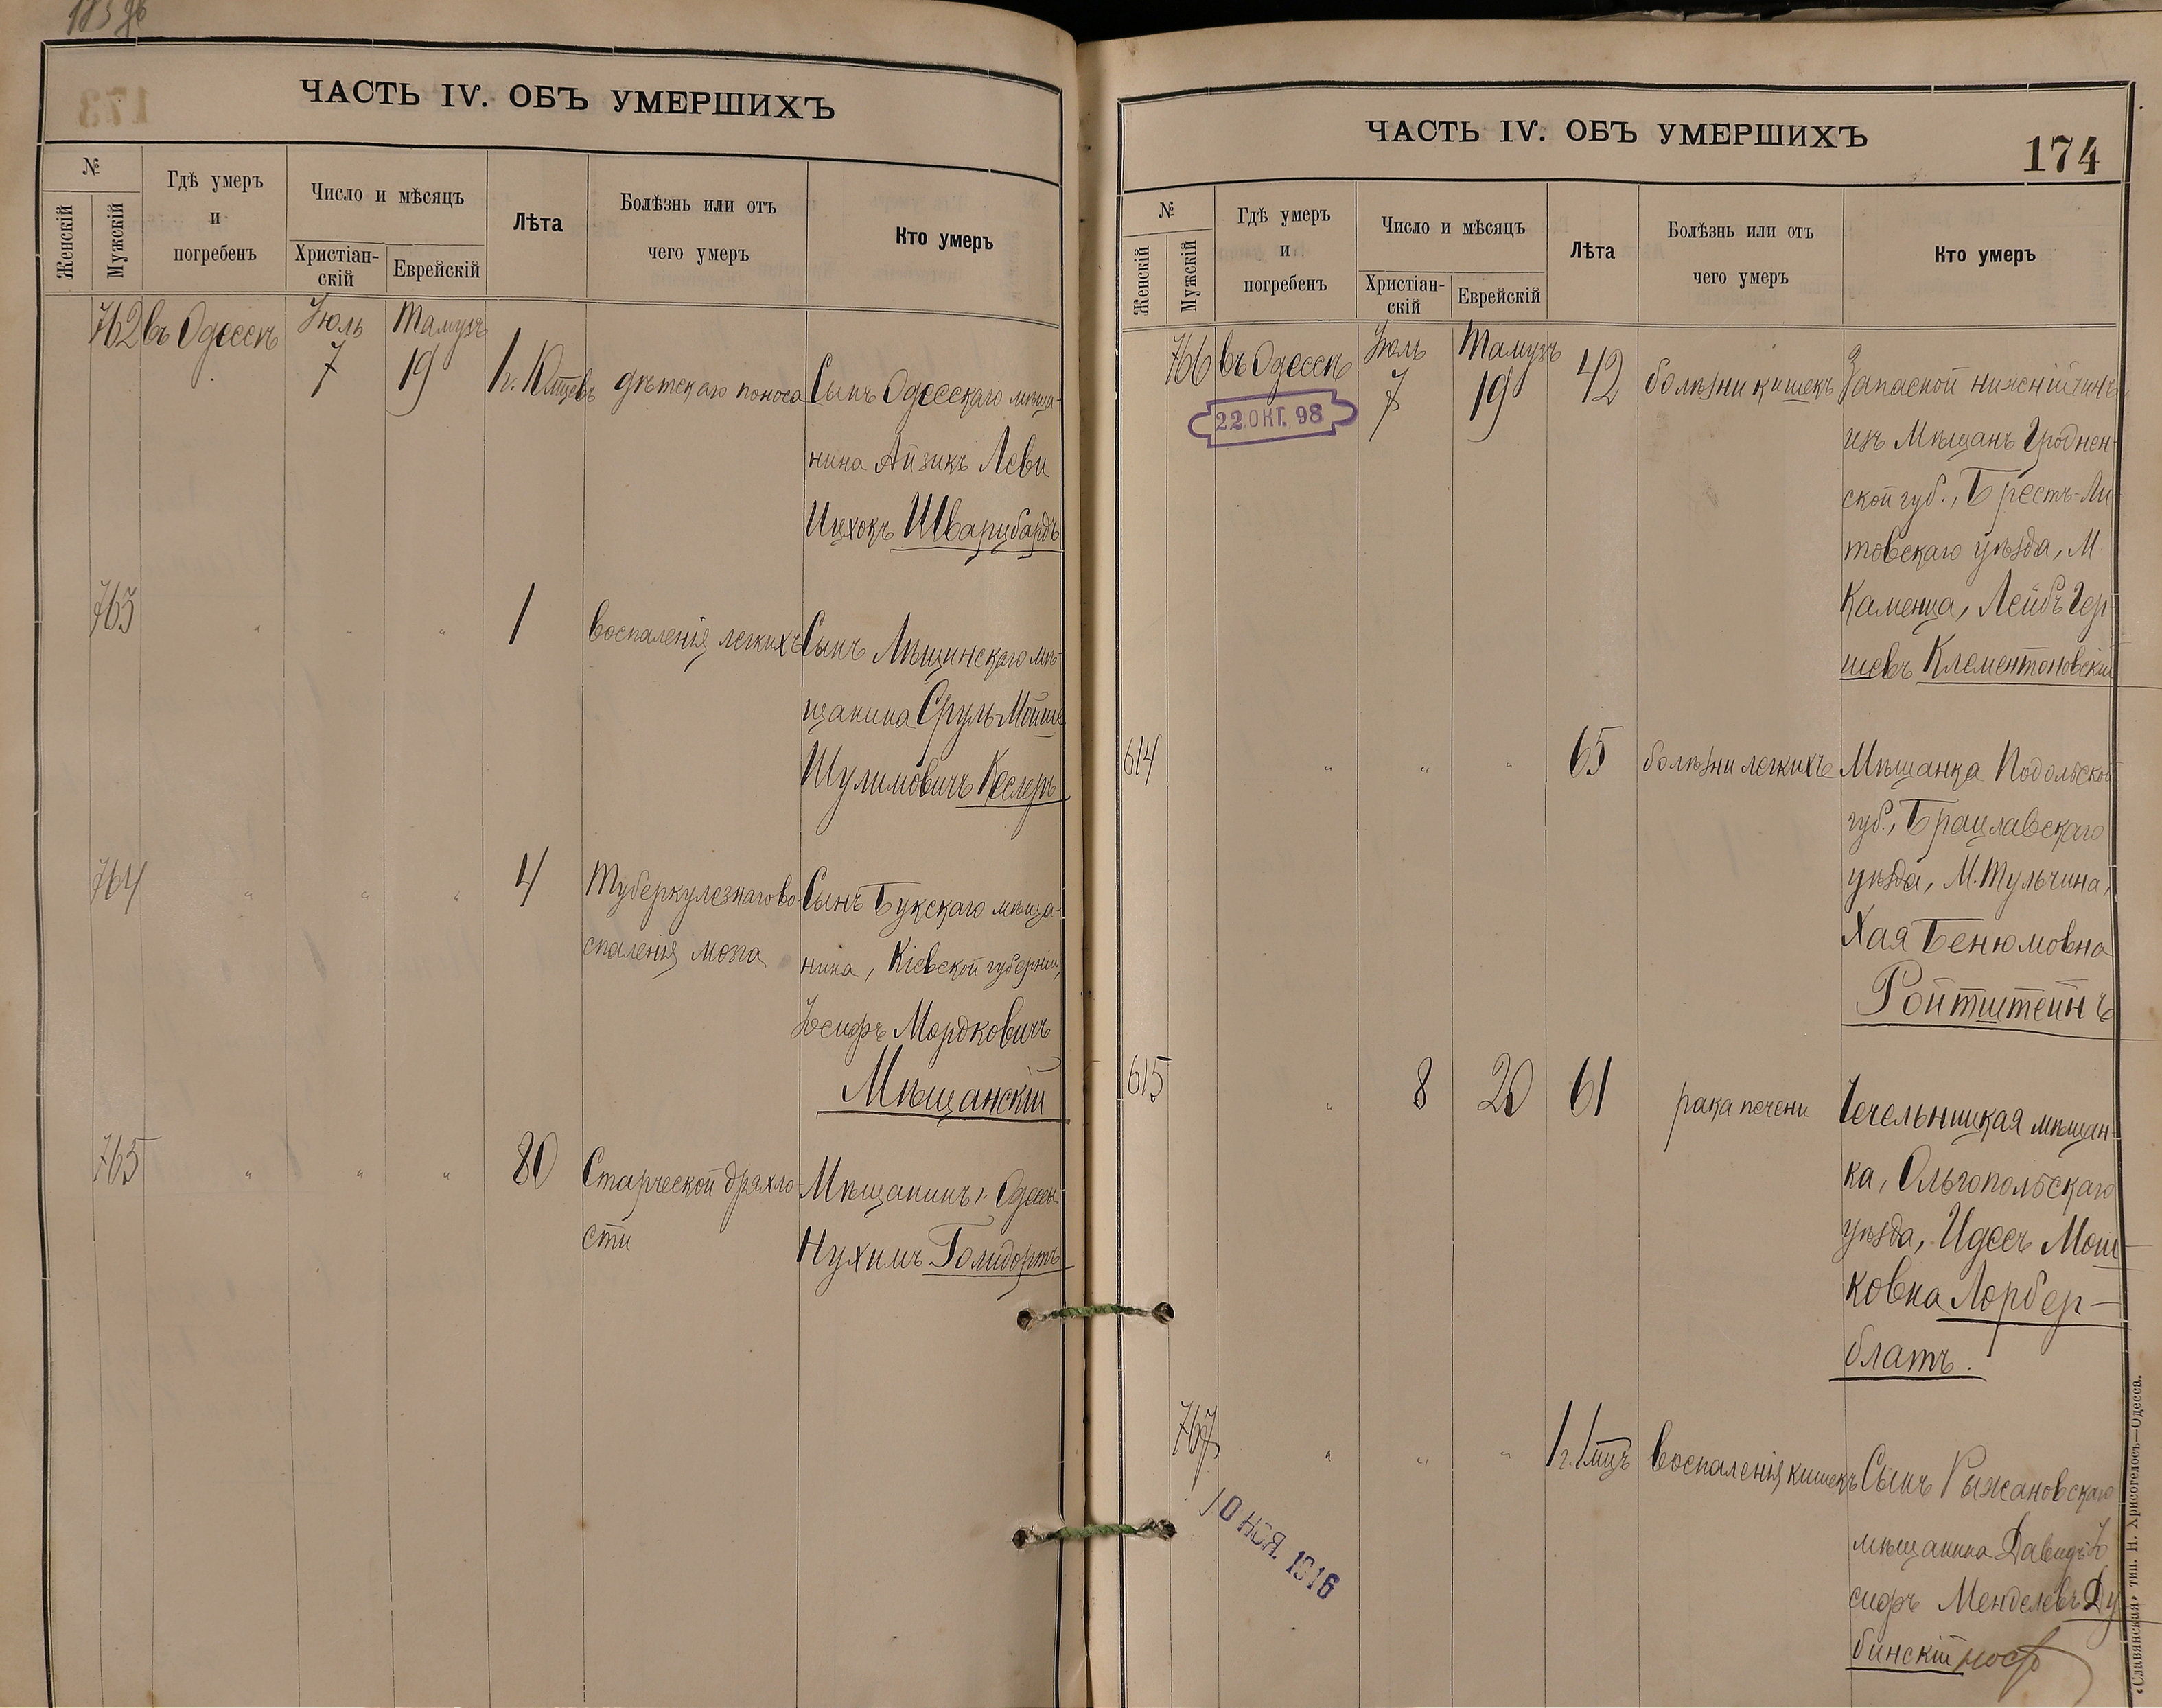 ЧАСТЬ IV. ОБЪ УМЕРШИХЪ
№
Женскій
Мужскій
Гдѣ умеръ
и
погребенъ
Число и мѣсяцъ
Христіан-
скій
Еврейскій
Лѣта
Болѣзнь или отъ
чего умеръ
Кто умеръ
762 въ Одессѣ Іюль Тамузъ
7 19 дѣтскаго поноса Сынъ Одесскаго мѣща-
нина Айзикъ Леви
Ицхокъ Шварцбардъ
763 " " " 1 воспаленія легкихъ Сынъ мѣ-
щанина Сруль Мойше
Шулимовичъ Кеслеръ
764 " " " 4 Туберкулезнаго во- Сынъ Букскаго мѣща-
спаленія мозга нина, Кіевской губерніи,
Іосифъ Мордковичъ
Мѣщанскій
765 " " " 80 Старческой дряхло- Мѣщанинъ г. Одессы
сти Нухимъ
ЧАСТЬ IV. ОБЪ УМЕРШИХЪ
174
№
Женскій
Мужскій
Гдѣ умеръ
и
погребенъ
Число и мѣсяцъ
Христіан-
скій
Еврейскій
Лѣта
Болѣзнь или отъ
чего умеръ
Кто умеръ
766 въ Одессѣ Іюль Тамузъ
7 19 42 болѣзни кишекъ Запасной нижній чинъ
22.ОКТ. 98
изъ Мѣщанъ Гроднен-
ской губ., Брестъ-Ли-
товскаго уѣзда, М.
Каменца, Лейбъ Гер-
шевъ Клементоновскій
614 " " " 65 болѣзни легкихъ Мѣщанка Подольской
губ., Брацлавскаго
уѣзда, М. Тульчина,
Хая Бенюмовна
Ройтштейнъ
615 " 8 20 61 рака печени Чечельницкая мѣщан-
ка, Ольгопольскаго
уѣзда, Идесъ Мош-
ковна Лорбер-
блатъ.
767 " " " 1 г. 1 мцъ воспаленія кишекъ Сынъ Рыжановскаго
мѣщанина Давидъ Іо
сифъ Менделевъ Ду
бинскій
10 НОЯ. 1916
«Славянская» тип. Н. Хрисогелосъ—Одесса.